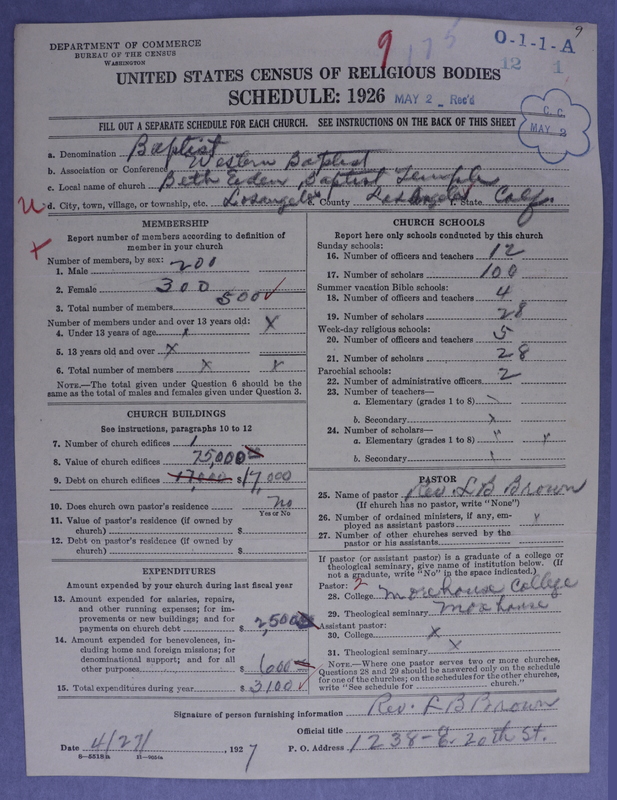 DEPARTMENT OF COMMERCE
BUREAU OF THE CENSUS
WASHINGTON
9
9 175
O-1-1-A
12 1
UNITED STATES CENSUS OF RELIGIOUS BODIES
SCHEDULE: 1926 MAY 2 Rec'd
C. C.
MAY 2
FILL OUT A SEPARATE SCHEDULE FOR EACH CHURCH. SEE INSTRUCTIONS ON THE BACK OF THIS SHEET
a. Denomination Baptist
b. Association or Conference Western Baptist
c. Local name of church Beth Eden Baptist Temple
d. City, town, village, or township, etc. Los angeles e. County Los Angeles f. State Calf.
MEMBERSHIP
Report number of members according to definition of
member in your church
Number of members, by sex:
1. Male 200
2. Female 300
3. Total number of members 500 ✓
Number of members under and over 13 years old: X
4. Under 13 years of age x
5. 13 years old and over X
6. Total number of members X X
NOTE.—The total given under Question 6 should be the
same as the total of males and females given under Question 3.
CHURCH BUILDINGS
See instructions, paragraphs 10 to 12
7. Number of church edifices 1
8. Value of church edifices 75,000
9. Debt on church edifices 17,000 $17,000
10. Does church own pastor's residence No
Yes or No
11. Value of pastor's residence (if owned by
church) $
12. Debt on pastor's residence (if owned by
church) $
EXPENDITURES
Amount expended by your church during last fiscal year
13. Amount expended for salaries, repairs,
and other running expenses; for im-
provements or new buildings; and for
payments on church debt $ 2,500
14. Amount expended for benevolences, in-
cluding home and foreign missions; for
denominational support; and for all
other purposes $ 600
15. Total expenditures during year $ 3100 ✓
CHURCH SCHOOLS
Report here only schools conducted by this church
Sunday schools:
16. Number of officers and teachers 12
17. Number of scholars 100
Summer vacation Bible schools:
18. Number of officers and teachers 4
19. Number of scholars 28
Week-day religious schools:
20. Number of officers and teachers 5
21. Number of scholars 28
Parochial schools:
22. Number of administrative officers 2
23. Number of teachers—
a. Elementary (grades 1 to 8)
b. Secondary x
24. Number of scholars—
a. Elementary (grades 1 to 8)
b. Secondary
PASTOR
25. Name of pastor Rev. L B Brown
(If church has no pastor, write "None")
26. Number of ordained ministers, if any, em-
ployed as assistant pastors
27. Number of other churches served by the
pastor or his assistants
If pastor (or assistant pastor) is a graduate of a college or
theological seminary, give name of institution below. (If
not a graduate, write "No" in the space indicated.)
Pastor: 2
28. College Morehouse College
29. Theological seminary Morehouse
Assistant pastor:
30. College X
31. Theological seminary X
NOTE.—Where one pastor serves two or more churches,
Questions 28 and 29 should be answered only on the schedule
for one of the churches; on the schedules for the other churches,
write "See schedule for church."
Signature of person furnishing information Rev. L B Brown
Official title
Date 4/27/, 1927 P. O. Address 1238-E. 20th St.